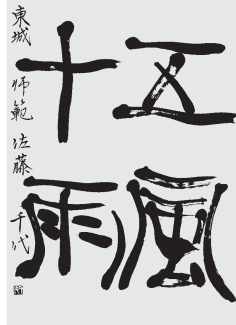 五風
十雨
東城 師範 佐藤 千代